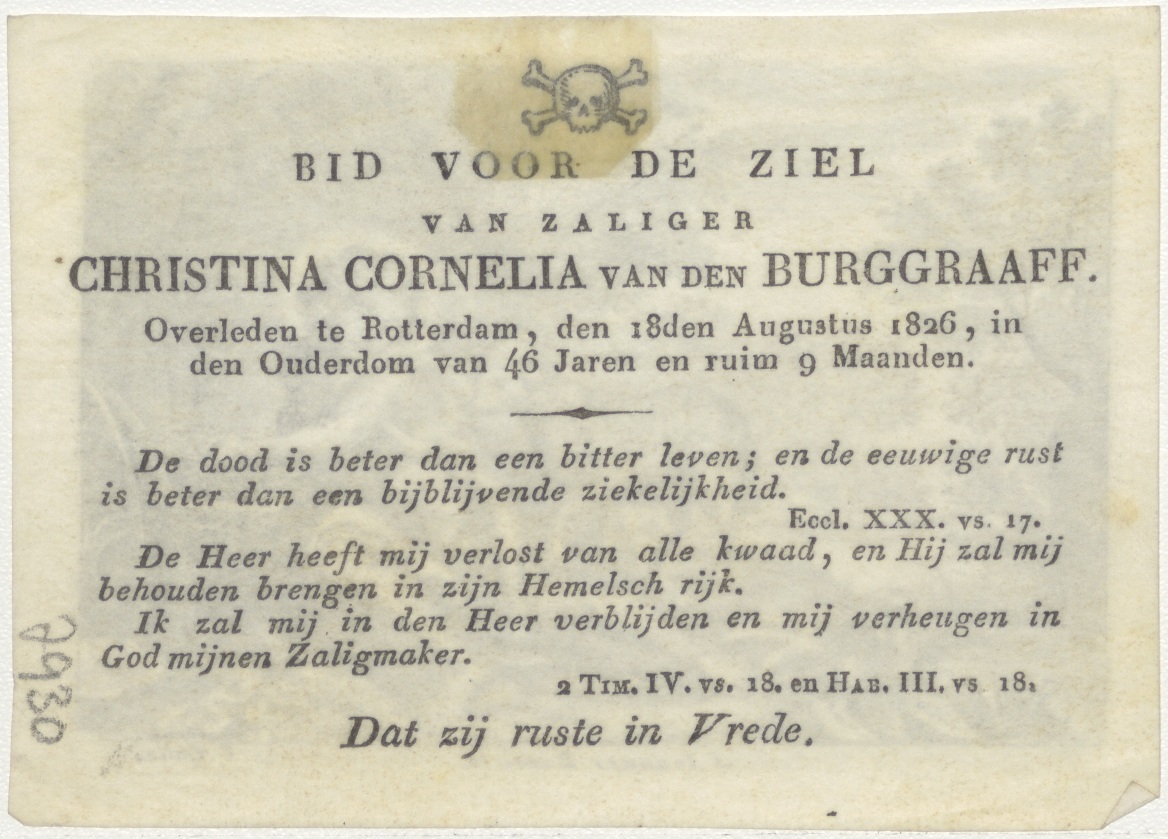 BID VOOR DE ZIEL
VAN ZALIGER
CHRISTINA CORNELIA VAN DEN BURGGRAAFF.
Overleden te Rotterdam, den 18den Augustus 1826, in
den Ouderdom van 46 Jaren en ruim 9 Maanden.
De dood is beter dan een bitter leven; en de eeuwige rust
is beter dan een bijblijvende ziekelijkheid.
Eccl. XXX. vs. 17.
De Heer heeft mij verlost van alle kwaad, en Hij zal mij
behouden brengen in zijn Hemelsch rijk.
Ik zal mij in den Heer verblijden en mij verheugen in
God mijnen Zaligmaker.
2 TIM. IV. vs. 18. en HAB. III. vs 18.
Dat zij ruste in Vrede.